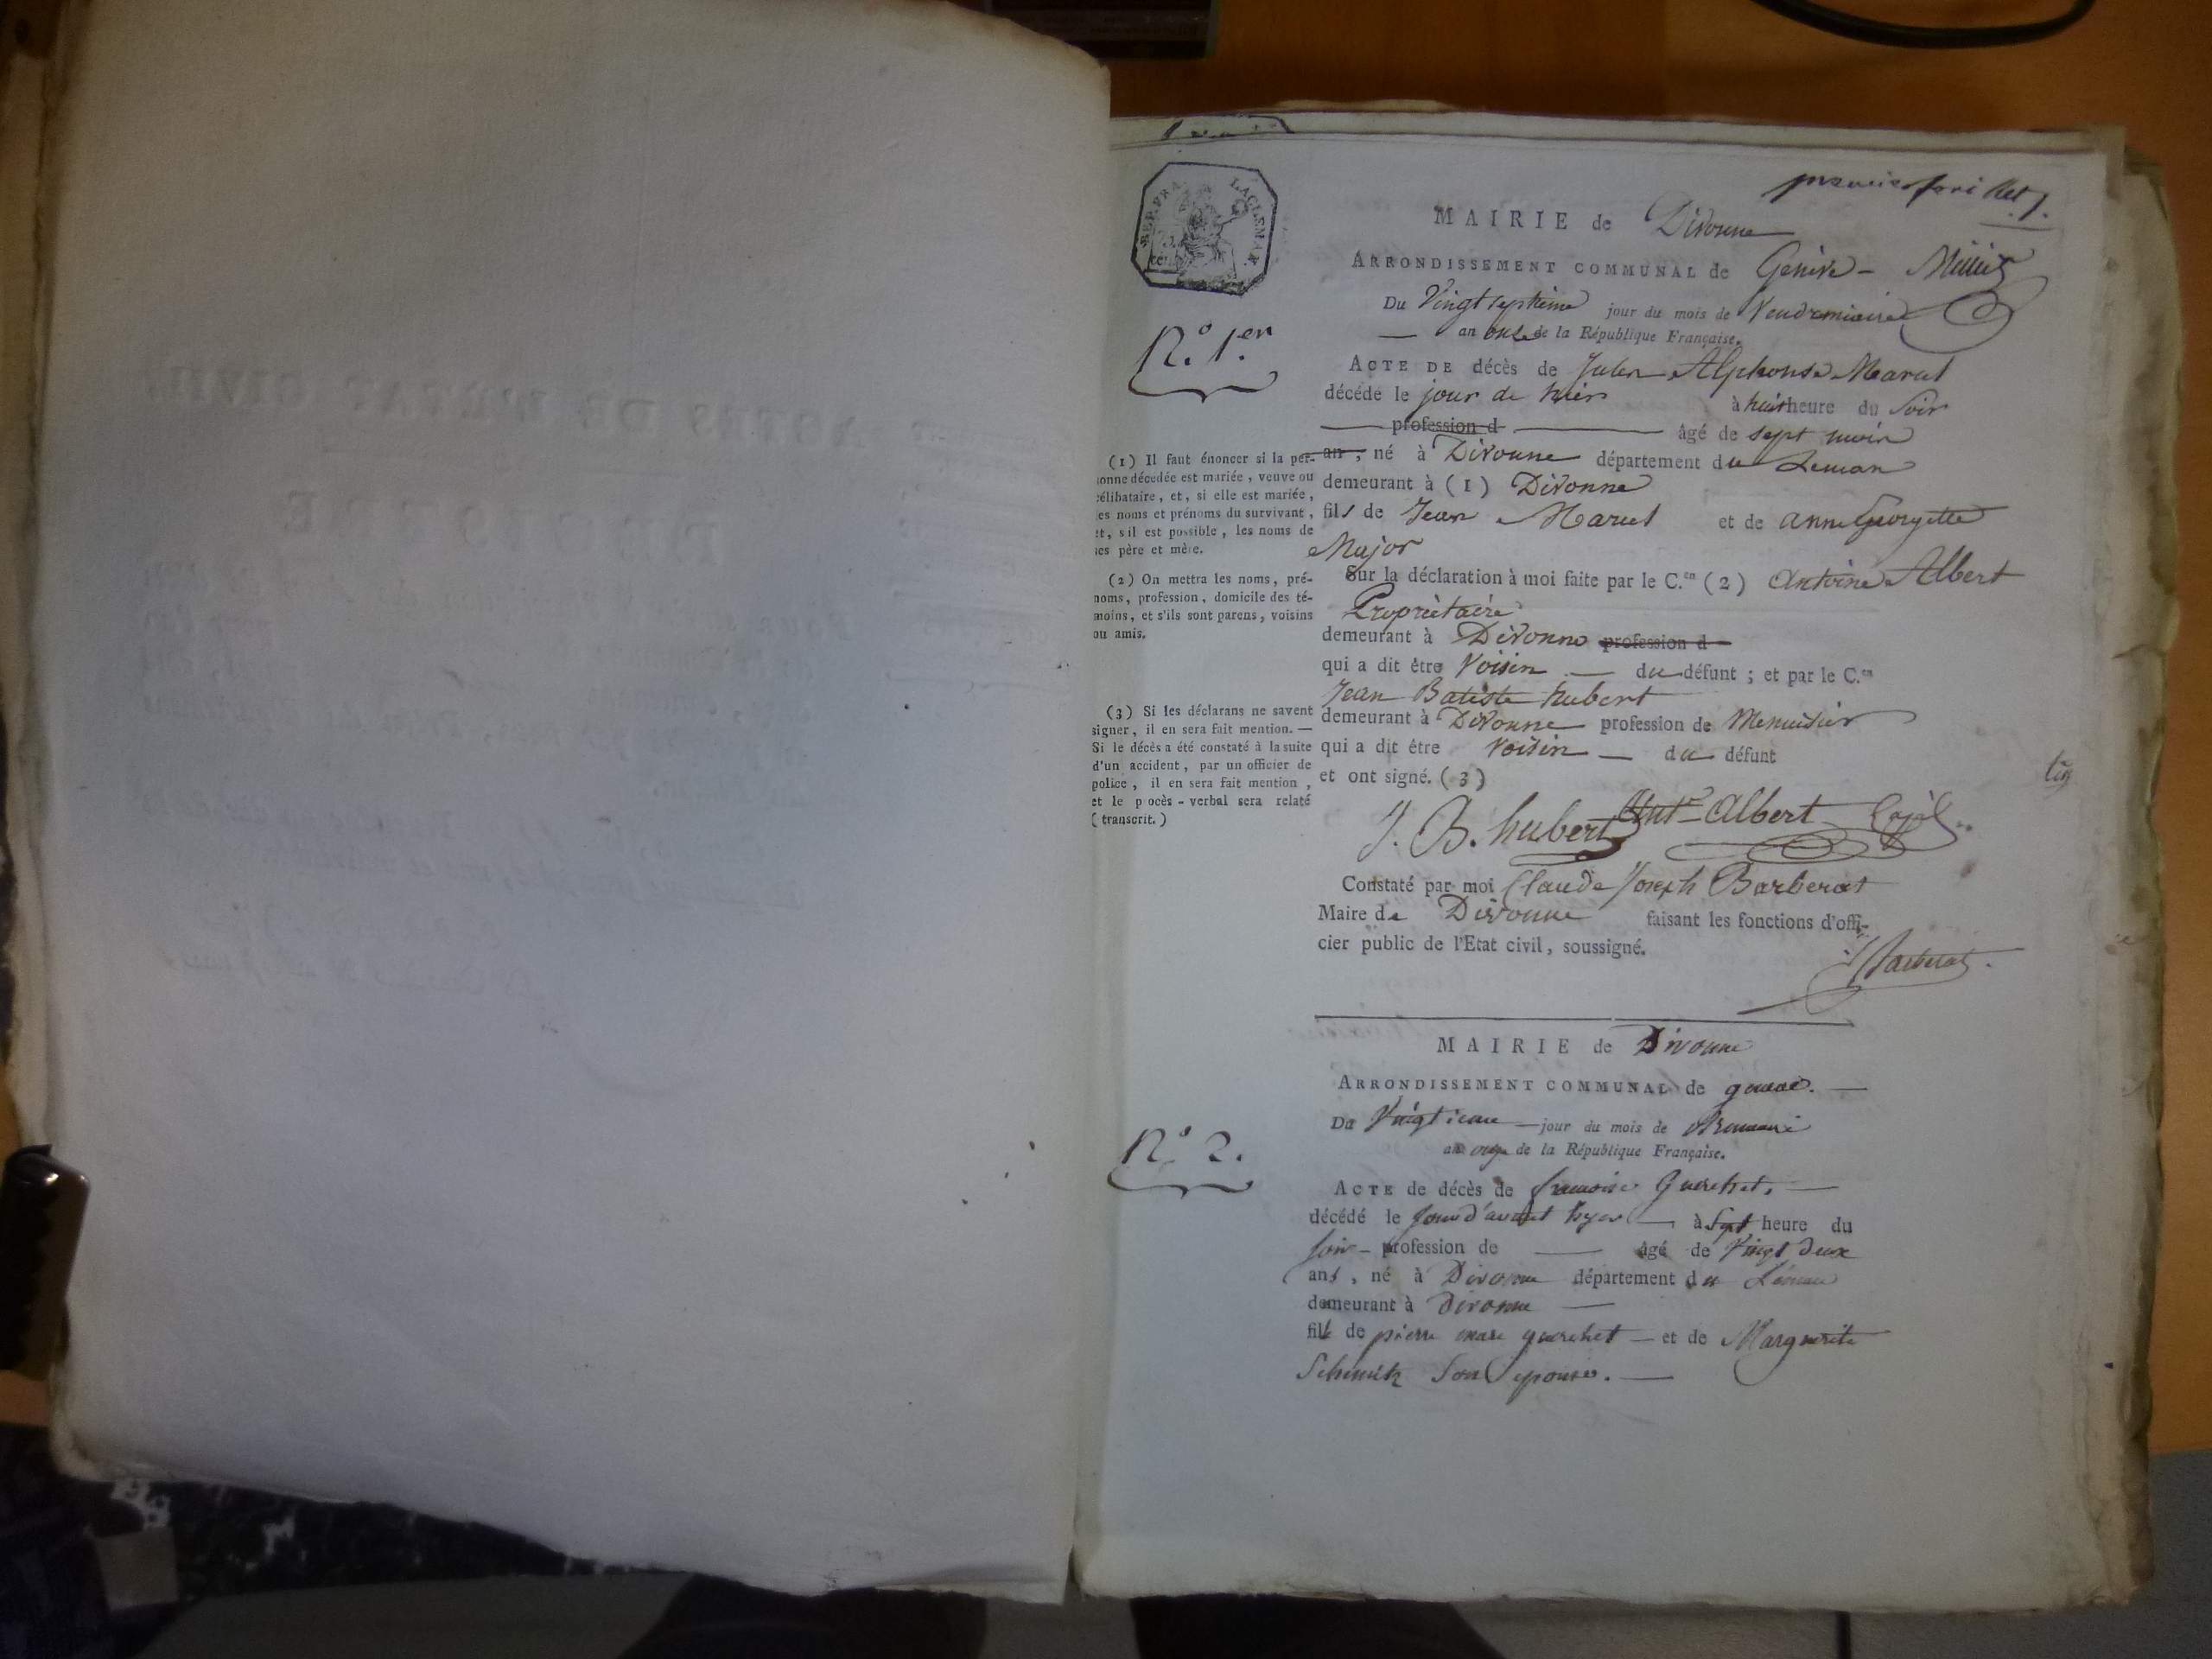 premier feuillet /.
REP. FRA.
MAIRIE de Divonne
ARRONDISSEMENT COMMUNAL de Genève -
Du Vingt septième jour du mois de Vendemiaire
an onze de la République Française.
N.º 1.er
ACTE DE décès de Jules Alphonse Marcel
décédé le jour de hier à huit heure du Soir
profession d âgé de sept mois
an, né à Divonne département du Leman
demeurant à (1) Divonne
fils de Jean Marcel et de anne Georgette
Major
Sur la déclaration à moi faite par le C.en (2) Antoine Albert
Propriètaire
demeurant à Divonne profession d
qui a dit être Voisin du défunt ; et par le C.en
Jean Batiste hubert
demeurant à Divonne profession de Menuisier
qui a dit être voisin du défunt
et ont signé. (3)
J. B. hubert Ant.e Albert
Constaté par moi Claude Joseph Barberat
Maire de Divonne faisant les fonctions d'offi-
cier public de l'Etat civil, soussigné.
Barberat
(1) Il faut énoncer si la per-
sonne décedée est mariée, veuve ou
célibataire, et, si elle est mariée,
les noms et prénoms du survivant,
et, s'il est possible, les noms de
ses père et mère.
(2) On mettra les noms, pré-
noms, profession, domicile des té-
moins, et s'ils sont parens, voisins
ou amis.
(3) Si les déclarans ne savent
signer, il en sera fait mention. —
Si le décès a été constaté à la suite
d'un accident, par un officier de
police, il en sera fait mention,
et le procès-verbal sera relaté
( transcrit. )
MAIRIE de Divonne
ARRONDISSEMENT COMMUNAL de geneve. —
Du Vingtieme — jour du mois de Brumaire
an onze de la République Française.
N.º 2.
ACTE de décès de francoise Guerchet, —
décédé le Jour d'avant hyer — à Sept heure du
soir - profession de — âgé de Vingt deux
ans, né à Divonne département du Léman
demeurant à Divonne —
fille de pierre marc guerchet — et de Marguerite
Schmitz Son epouse. —